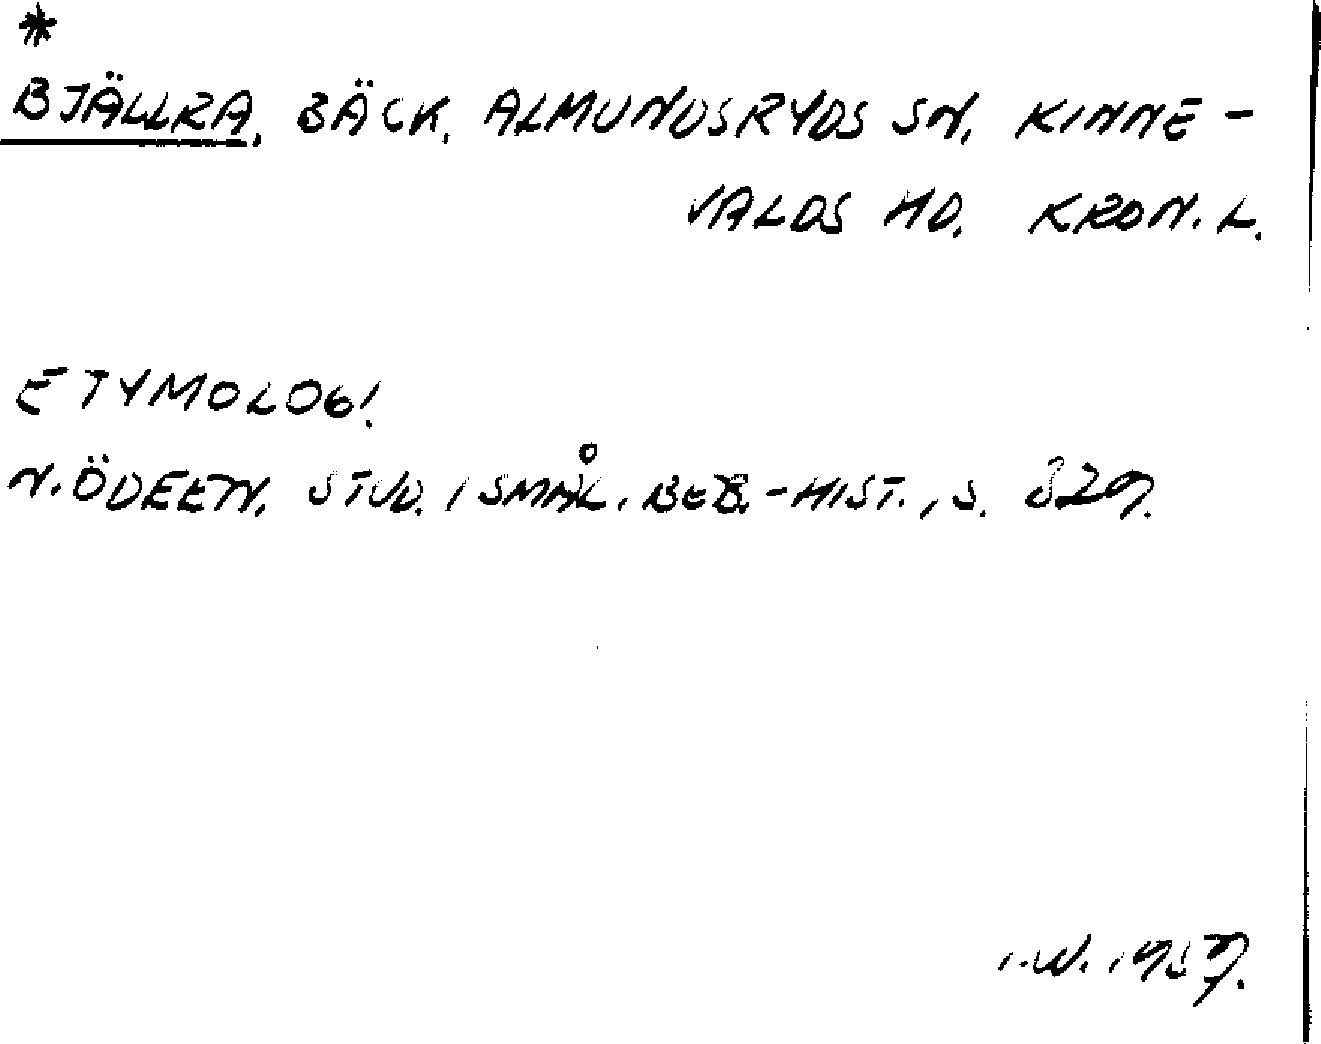 *
BJÄLLRA, BÄCK, ALMUNDSRYDS SN, KINNE-
VALDS HD. KRON. L.
ETYMOLOGI
N. ÖDEEN, STUD. I SMÅL. BEB.-HIST., S. 329.
I. W. 1957.